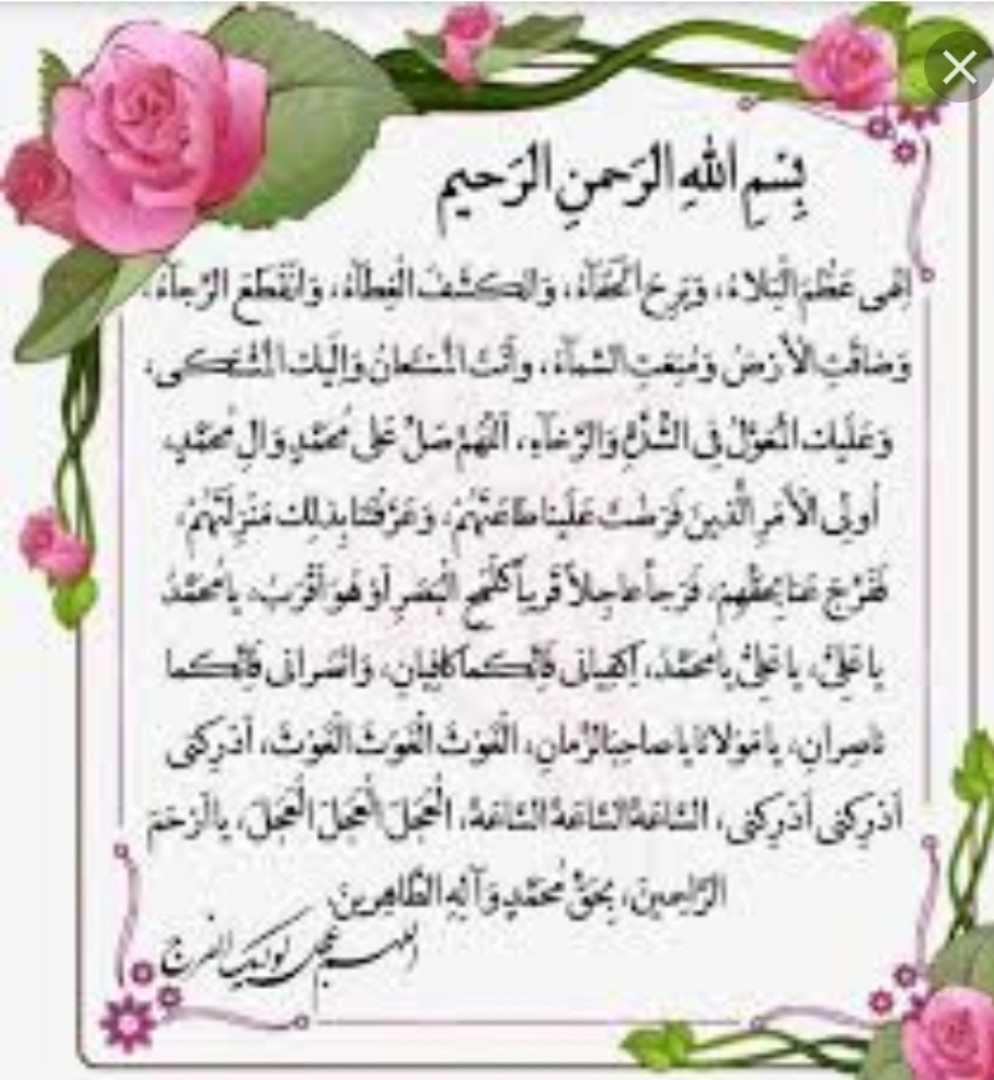 بِسْمِ اللهِ الرَحمنِ الرَحیمِ
اِلهی عَظُمَ الْبَلاءُ، وَبَرِحَ الْخَفآءُ، وَانْکَشَفَ الْغِطآءُ، وَانْقَطَعَ الرَّجآءُ،
وَضاقَتِ الاَْرْضُ وَمُنِعَتِ السَّمآءُ، وَاَنْتَ الْمُسْتَعانُ وَاِلَیْكَ الْمُشْتَکی،
وَعَلَیْكَ الْمُعَوَّلُ فِی الشِّدَّةِ وَالرَّخآءِ، اَللّهُمَّ صَلِّ عَلی مُحَمَّدٍ وَالِ مُحَمَّدٍ،
اُولِی الاَْمْرِ الَّذینَ فَرَضْتَ عَلَیْنا طاعَتَهُمْ، وَعَرَّفْتَنا بِذلِكَ مَنْزِلَتَهُمْ،
فَفَرِّجْ عَنا بِحَقِّهِمْ، فَرَجاً عاجِلاً قَریباً کَلَمْحِ الْبَصَرِ اَوْ هُوَ اَقْرَبُ، یا مُحَمَّدُ
یا عَلِیُّ، یا عَلِیُّ یا مُحَمَّدُ، اِکْفِیانی فَاِنَّکُما کافِیانِ، وَانْصُرانی فَاِنَّکُما
ناصِرانِ، یا مَوْلانا یا صاحِبَ الزَّمانِ، الْغَوْثَ الْغَوْثَ الْغَوْثَ، اَدْرِکْنی
اَدْرِکْنی اَدْرِکْنی، السّاعَةَ السّاعَةَ السّاعَةَ، الْعَجَلَ الْعَجَلَ الْعَجَلَ، یا اَرْحَمَ
الرّاحِمینَ، بِحَقِّ مُحَمَّدٍ وَآلِهِ الطّاهِرینَ.
اللهم عجل لولیک الفرج